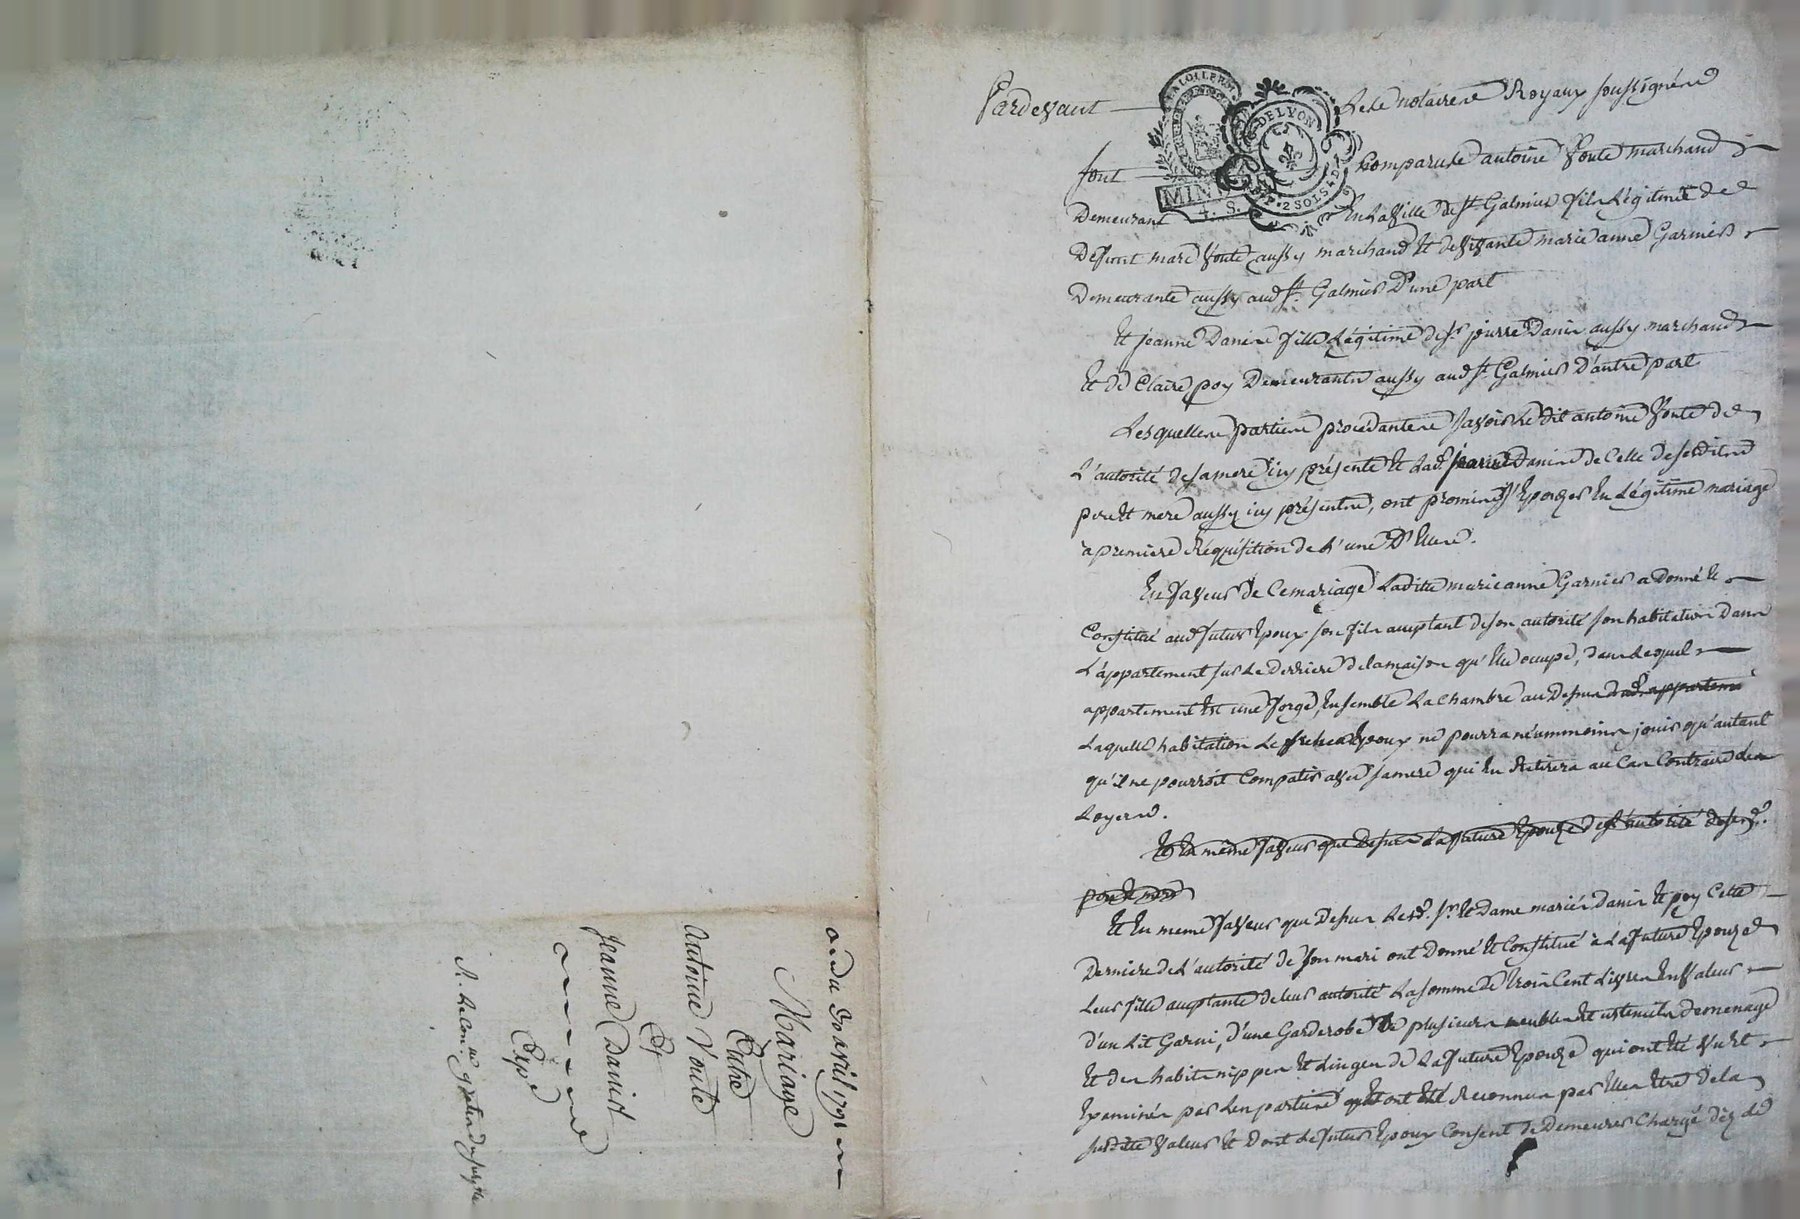 Pardevant Le notaire Royaux soussignéz
Sont Comparus antoine Voute marchand
Demeurant En la Ville de St. Galmier fils Légitime de
Defunt marc Voute aussy marchand et de Vivante marie anne Garnier
Demeurante aussy aud St. Galmier D'une part
Et jeanne Danis fille Légitime de Sr. pierre Danis aussy marchand
Et de Claire poy Demeurants aussy aud St. Galmier D'autre part
Lesquelles parties procedantes savoir Le dit antoine Voute de
L'autorité de sa mere icy présente Et Lad. jeanne Danis de Celle de sesdits
pere Et mere aussy icy présents, ont promis s'Epouzer En Légitime mariage
a premiere Réquisition de L'une D'Elles.
En faveur de Ce mariage Laditte marie anne Garnier a donné Et
Constitué aud futur Epoux son fils acceptant de son autorité son habitation Dans
L'appartement sur Le derriere de la maison qu'Elle occupe, dans Lequel
appartement Est une forge, Ensemble La Chambre au Dessus dud. appartemt
Laquelle habitation Le futur Epoux ne pourra néanmoins jouir qu'autant
qu'il ne pourroit Compatir avec sa mere qui En Retirera au Cas Contraire Les
Loyers.
Et En même faveur que Dessus La future Epouze de L'autorité de sesd.
pere Et mere
Et En meme faveur que Dessus Lesd. Sr. Et Dame mariés Danis Et poy Cette
Derniere de L'autorité de son mari ont Donné Et Constitué a La future Epouze
Leur fille acceptante de leur autorité La somme De Trois Cent Livres En Valeur
d'un Lit Garni, d'une Garderobe De plusieurs meubles Et ustenciles de menage
Et des habits nippes Et Linges de La future Epouze qui ont Eté Vu Et
Examinés par Les parties qui ont Eté Reconnus par Elles Etre de la
susditte Valeur Et Dont Le futur Epoux Consent de Demeurer Chargé dez a
du 30 avril 1791
Mariage
Entre
Antoine Voute
Et
Jeanne Danis
Expe